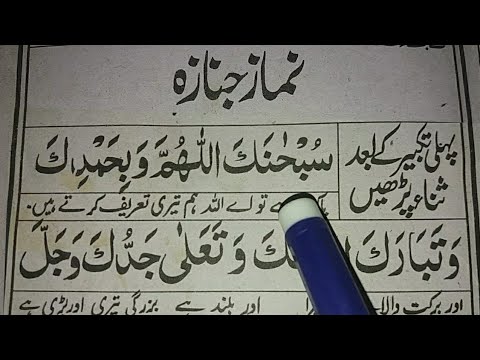 نماز جنازہ
پہلی تکبیر کے بعد
ثناء پڑھیں
سُبْحٰنَكَ اللّٰهُمَّ وَبِحَمْدِكَ
ہے تو اے اللہ ہم تیری تعریف کرتے ہیں۔
وَتَبَارَكَ وَتَعَالٰى جَدُّكَ وَجَلَّ
اور برکت والا اور بلند ہے بزرگی تیری اور بڑی ہے